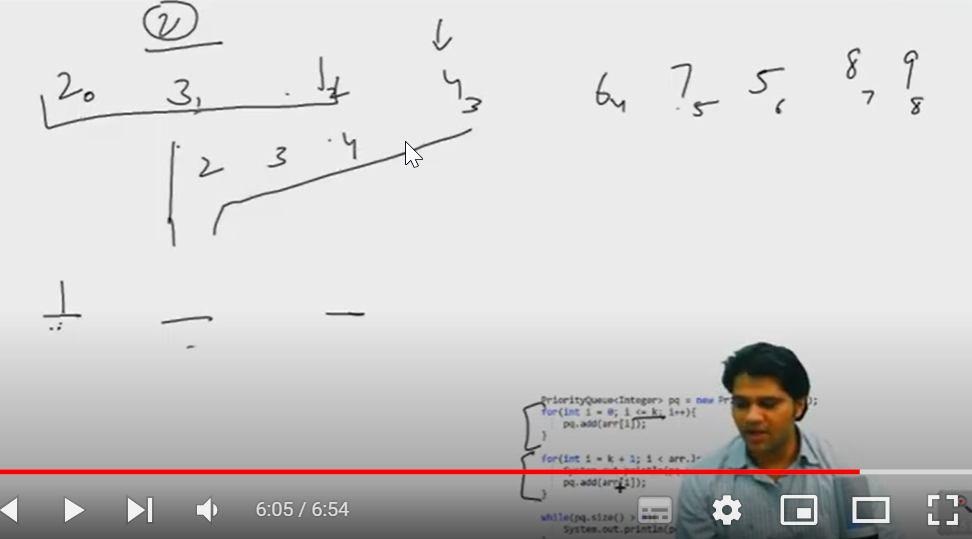 2
2 0 3 1 1 2 4 3 6 4 7 5 5 6 8 7 9 8
2 3 4
1
PriorityQueue<Integer> pq = new
for(int i = 0; i <= k; i++){
pq.add(arr[i]);
}
for(int i = k + 1; i < arr.
pq.add(arr[i]);
}
while(pq.size() >
System.out.println(
6:05 / 6:54